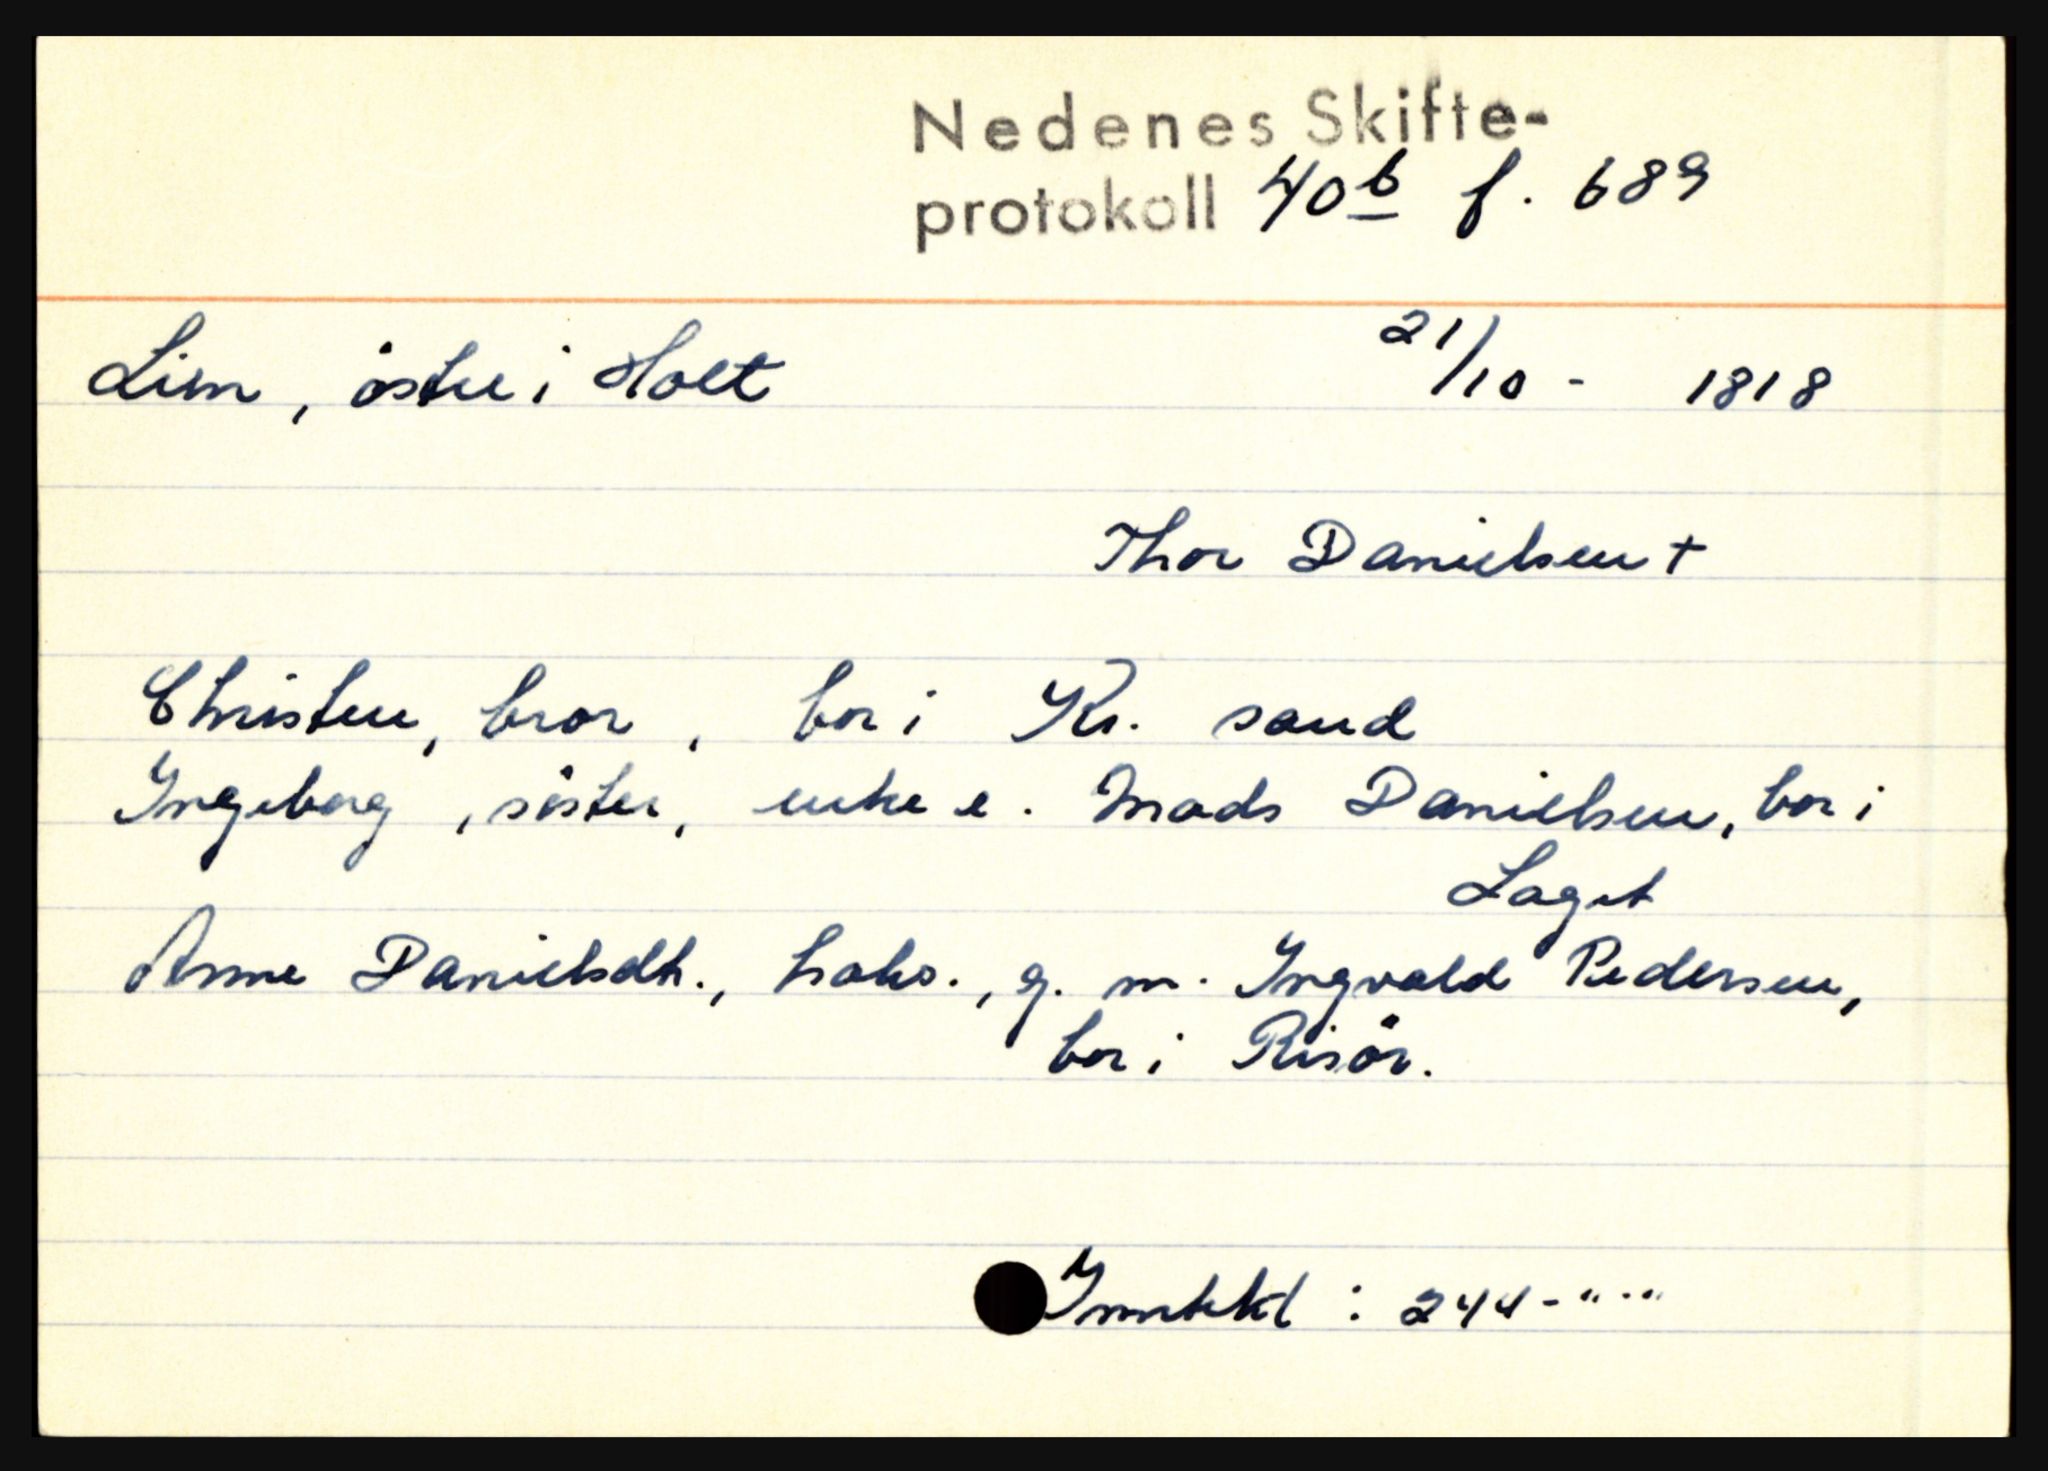 Nedenes Skifte-
protokoll 40b f. 689
Lien, östre i Holt 21/10 - 1818
Thor Danielsen +
Christen, bror, bor i Kr. sand
Ingeborg, söster, enke e. Mads Danielsen, bor i
Laget
Anne Danielsdtr., halvs., g. m. Ingvald Pedersen,
bor i Risör.
Inntekt : 244-"-"